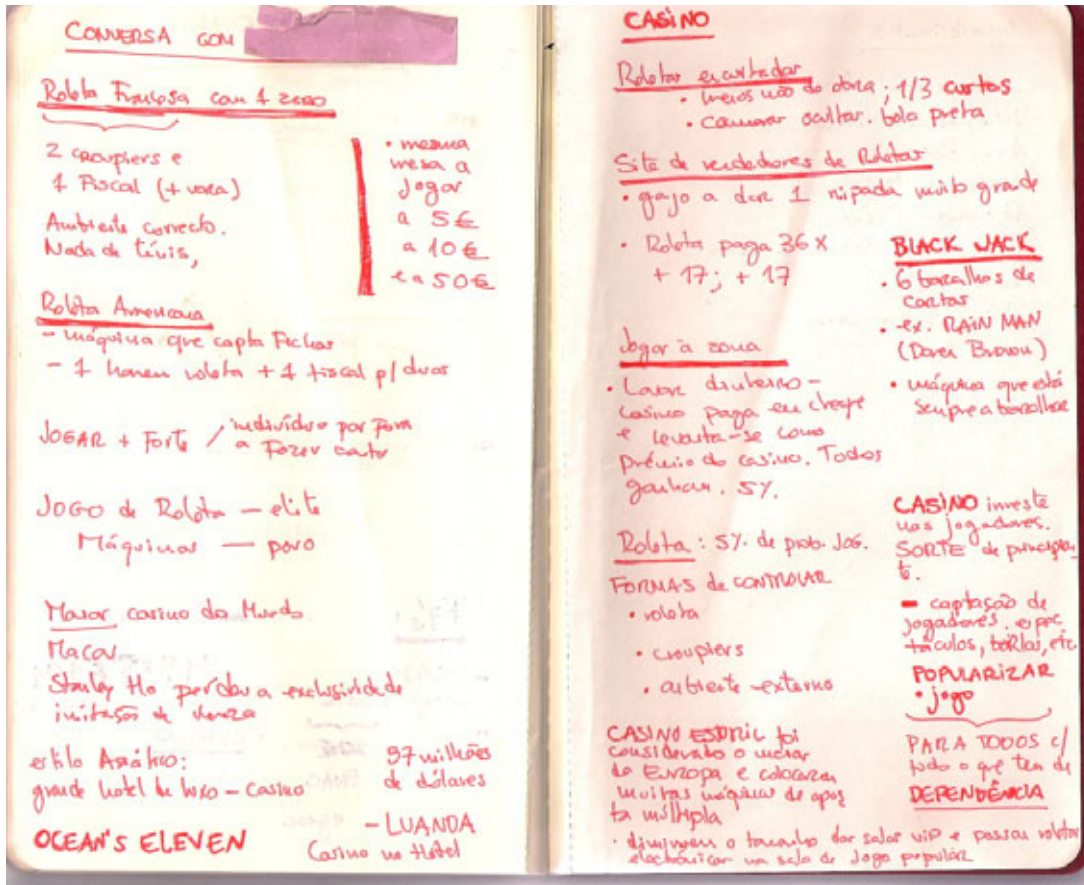 CONVERSA COM
Roleta Francesa com 1 zero
2 croupiers e
1 Fiscal (+ vara)
Ambiente correcto.
Nada de ténis,
• mesma
mesa a
jogar
a 5€
a 10€
e a 50€
Roleta Americana
- máquina que capta Fichas
- 1 homem roleta + 1 fiscal p/ duas
JOGAR + Forte / indivíduo por fora
a Fazer
JOGO de Roleta — elite
Máquinas — povo
Maior casino do Mundo
Macau
Stanley Ho perdeu a exclusividade
imitação de Veneza
estilo Asiático:
grande hotel de luxo - casino
97 milhões
de dólares
OCEAN'S ELEVEN
- LUANDA
Casino no Hotel
CASINO
Roletas
• ; 1/3 curtos
• camaras ocultas. bola preta
Site de vendedores de Roletas
• gajo a dar 1 muito grande
• Roleta paga 36 x
+ 17; + 17
Jogar à zona
• Lavar dinheiro -
casino paga em cheque
e levanta-se como
prémio do casino. Todos
ganham. 5%.
Roleta: 5% de prob. Jog.
FORMAS de CONTROLAR
• roleta
• croupiers
• ambiente externo
CASINO ESTORIL foi
considerado o maior
da Europa e colocaram
muitas máquinas de apos
ta múltipla
• diminuem o tamanho das salas vip e passam roletas
electrónicas na sala de Jogo popular
BLACK JACK
• 6 baralhos de
cartas
• ex. RAIN MAN
(Daren Brown)
• máquina que está
sempre a baralhar
CASINO investe
nos jogadores.
SORTE de principian
te.
- captação de
jogadores. espec
táculos, borlas, etc
POPULARIZAR
• jogo
PARA TODOS c/
todo o que tem de
DEPENDÊNCIA